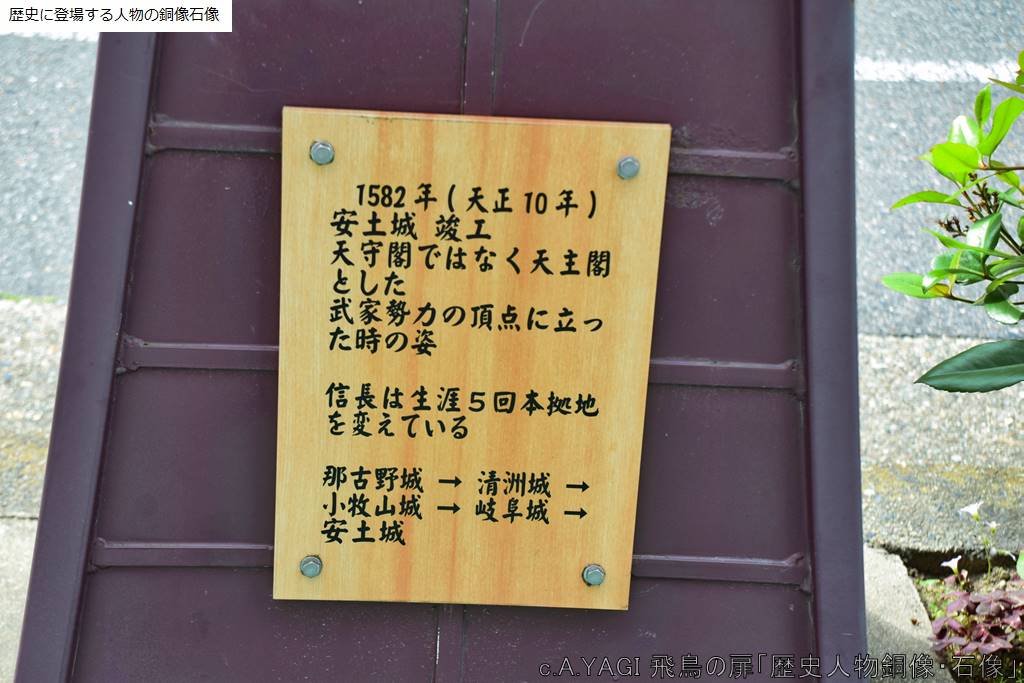 歴史に登場する人物の銅像石像
1582年(天正10年)
安土城 竣工
天守閣ではなく天主閣
とした
武家勢力の頂点に立っ
た時の姿
信長は生涯5回本拠地
を変えている
那古野城 → 清洲城 →
小牧山城 → 岐阜城 →
安土城
c.A.YAGI 飛鳥の扉「歴史人物銅像・石像」